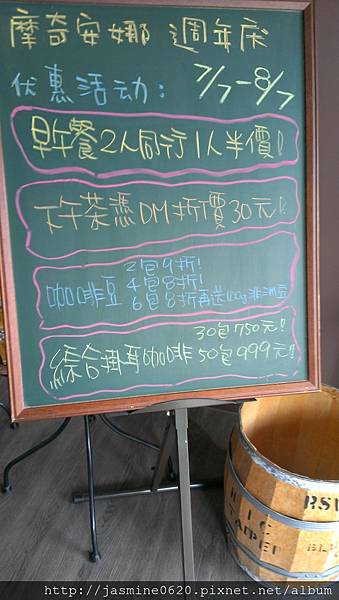 摩奇安娜 週年庆
优惠活动：7/7-8/7
早午餐2人同行1人半價！
下午茶憑DM折價30元！
2包9折！
4包8折！
咖啡豆 6包8折再送100g非洲豆
30包750元！！
綜合掛耳咖啡 50包999元！！
http://jasmine0620.pixnet.net/album